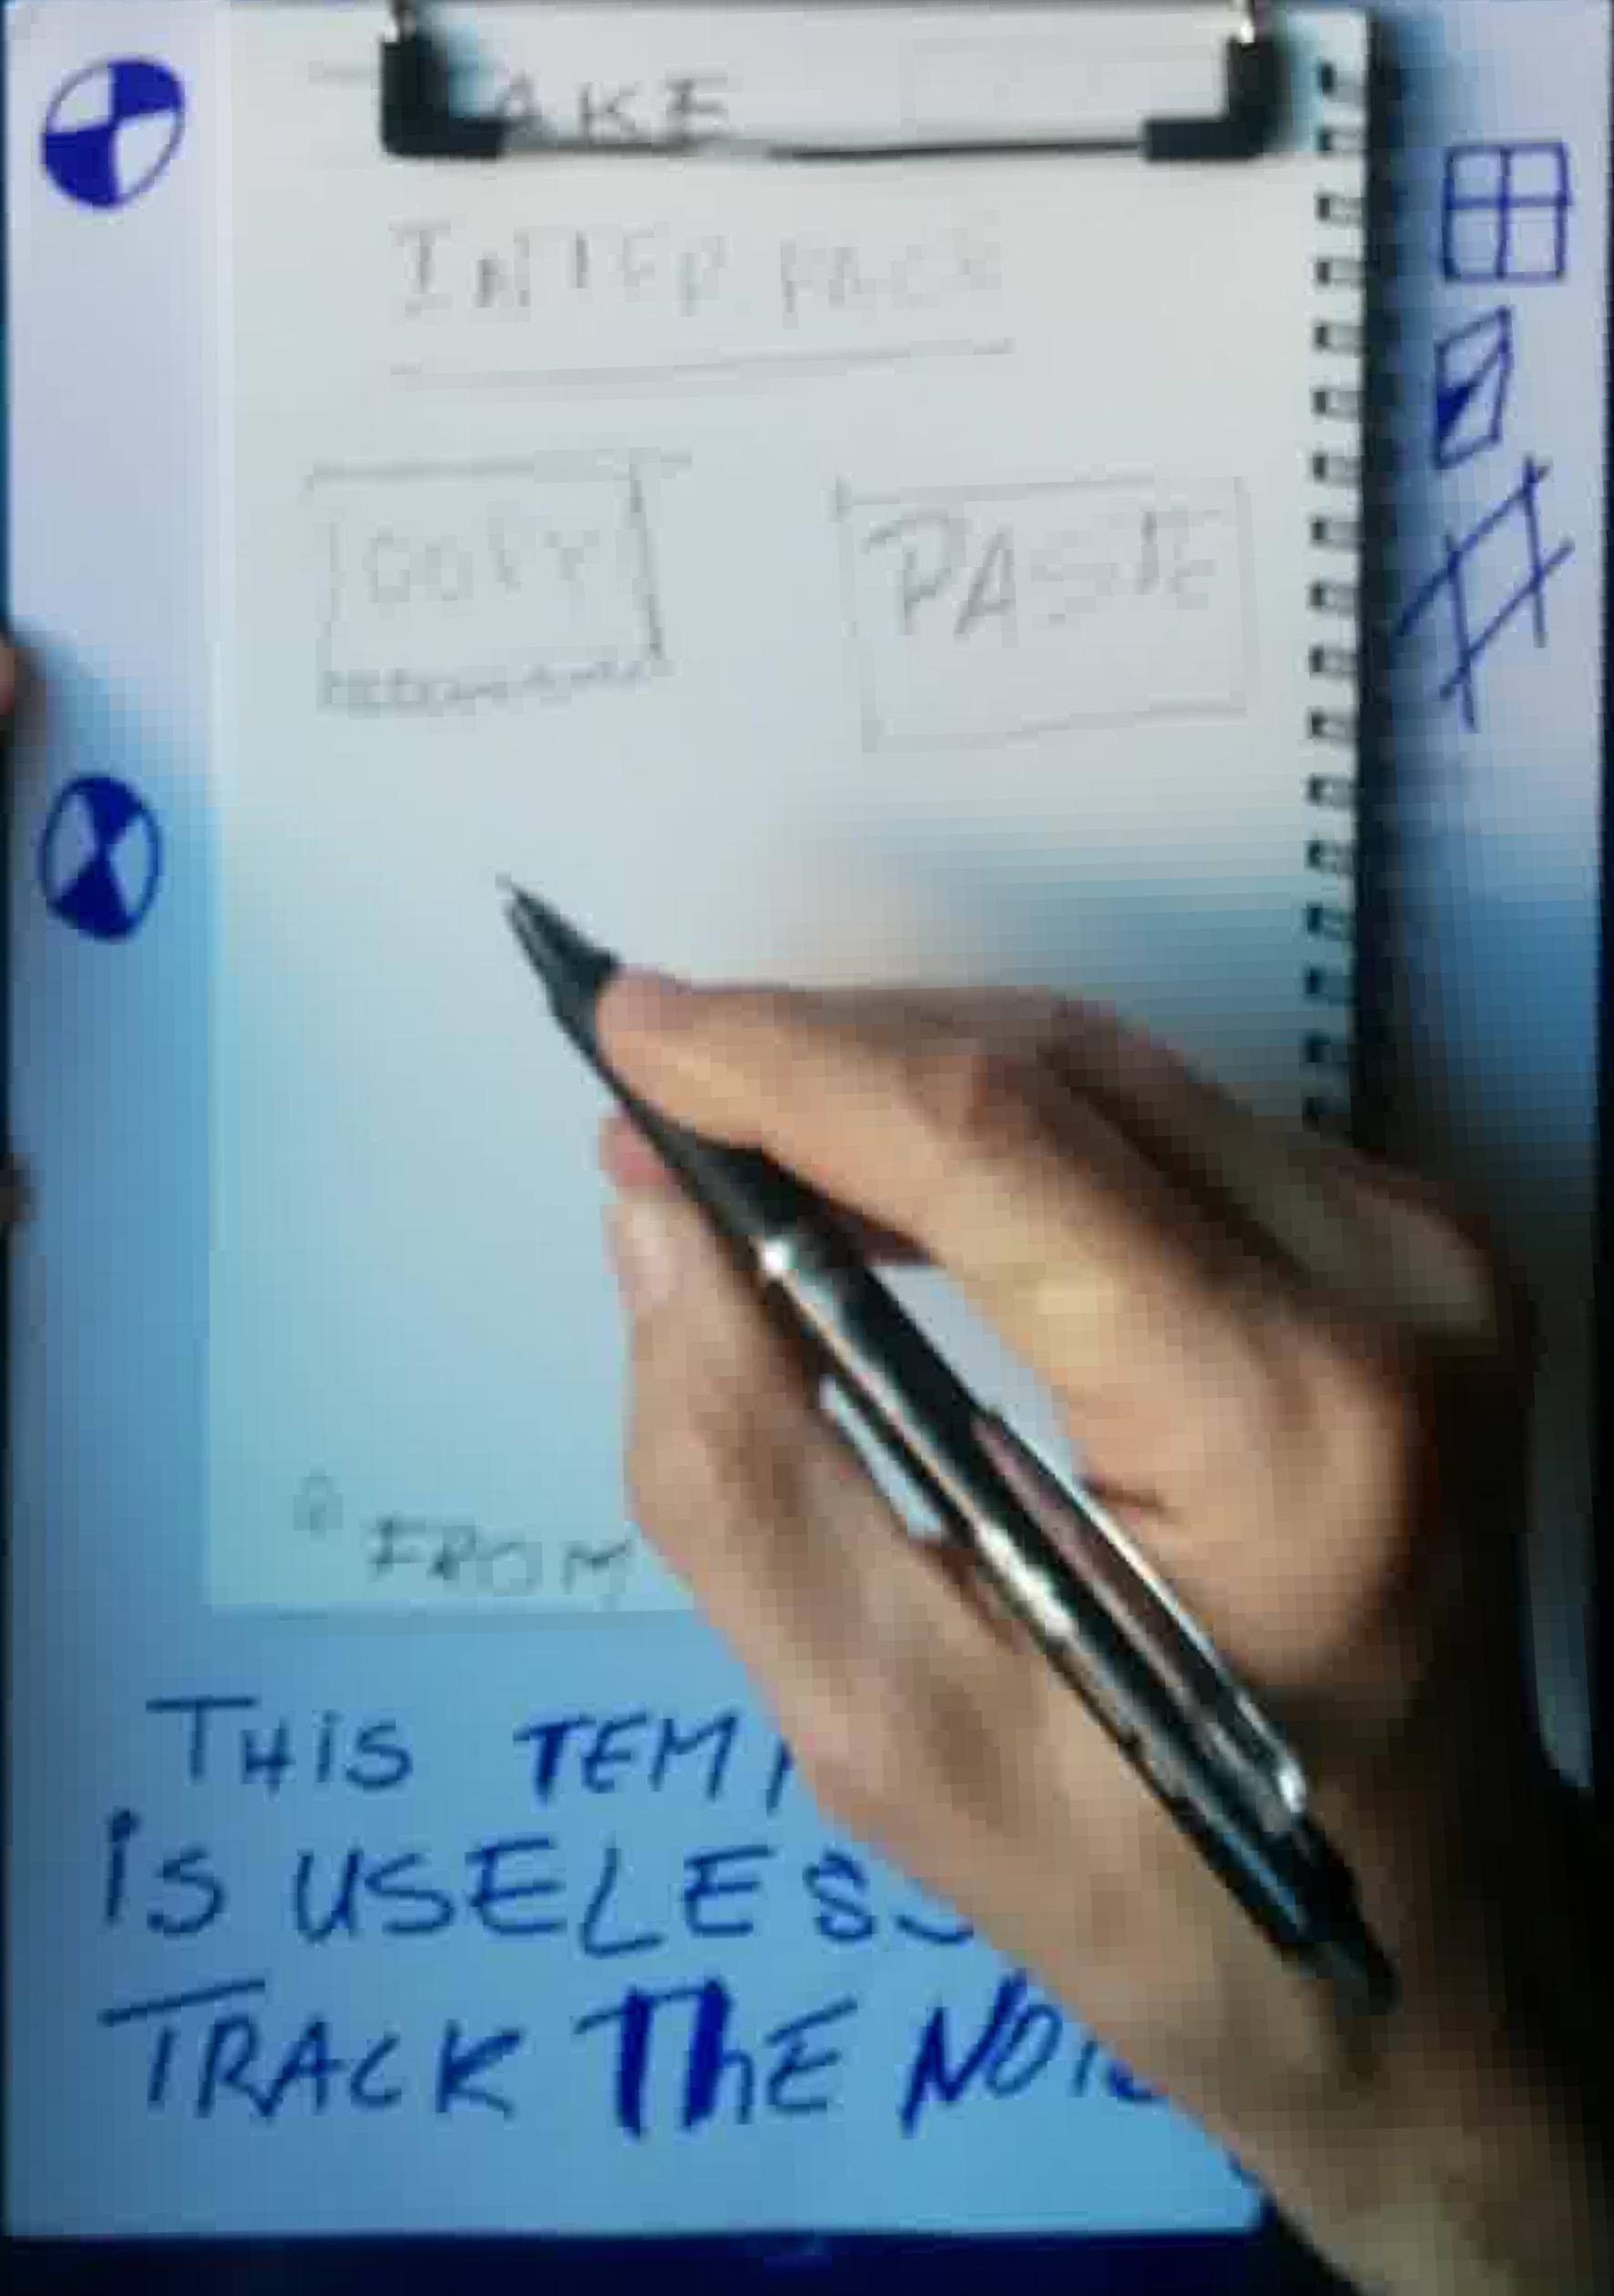 AKE
INTERFACE
COPY PASTE
FROM
THiS TEMP
iS USELESS
TRACK ThE NOI